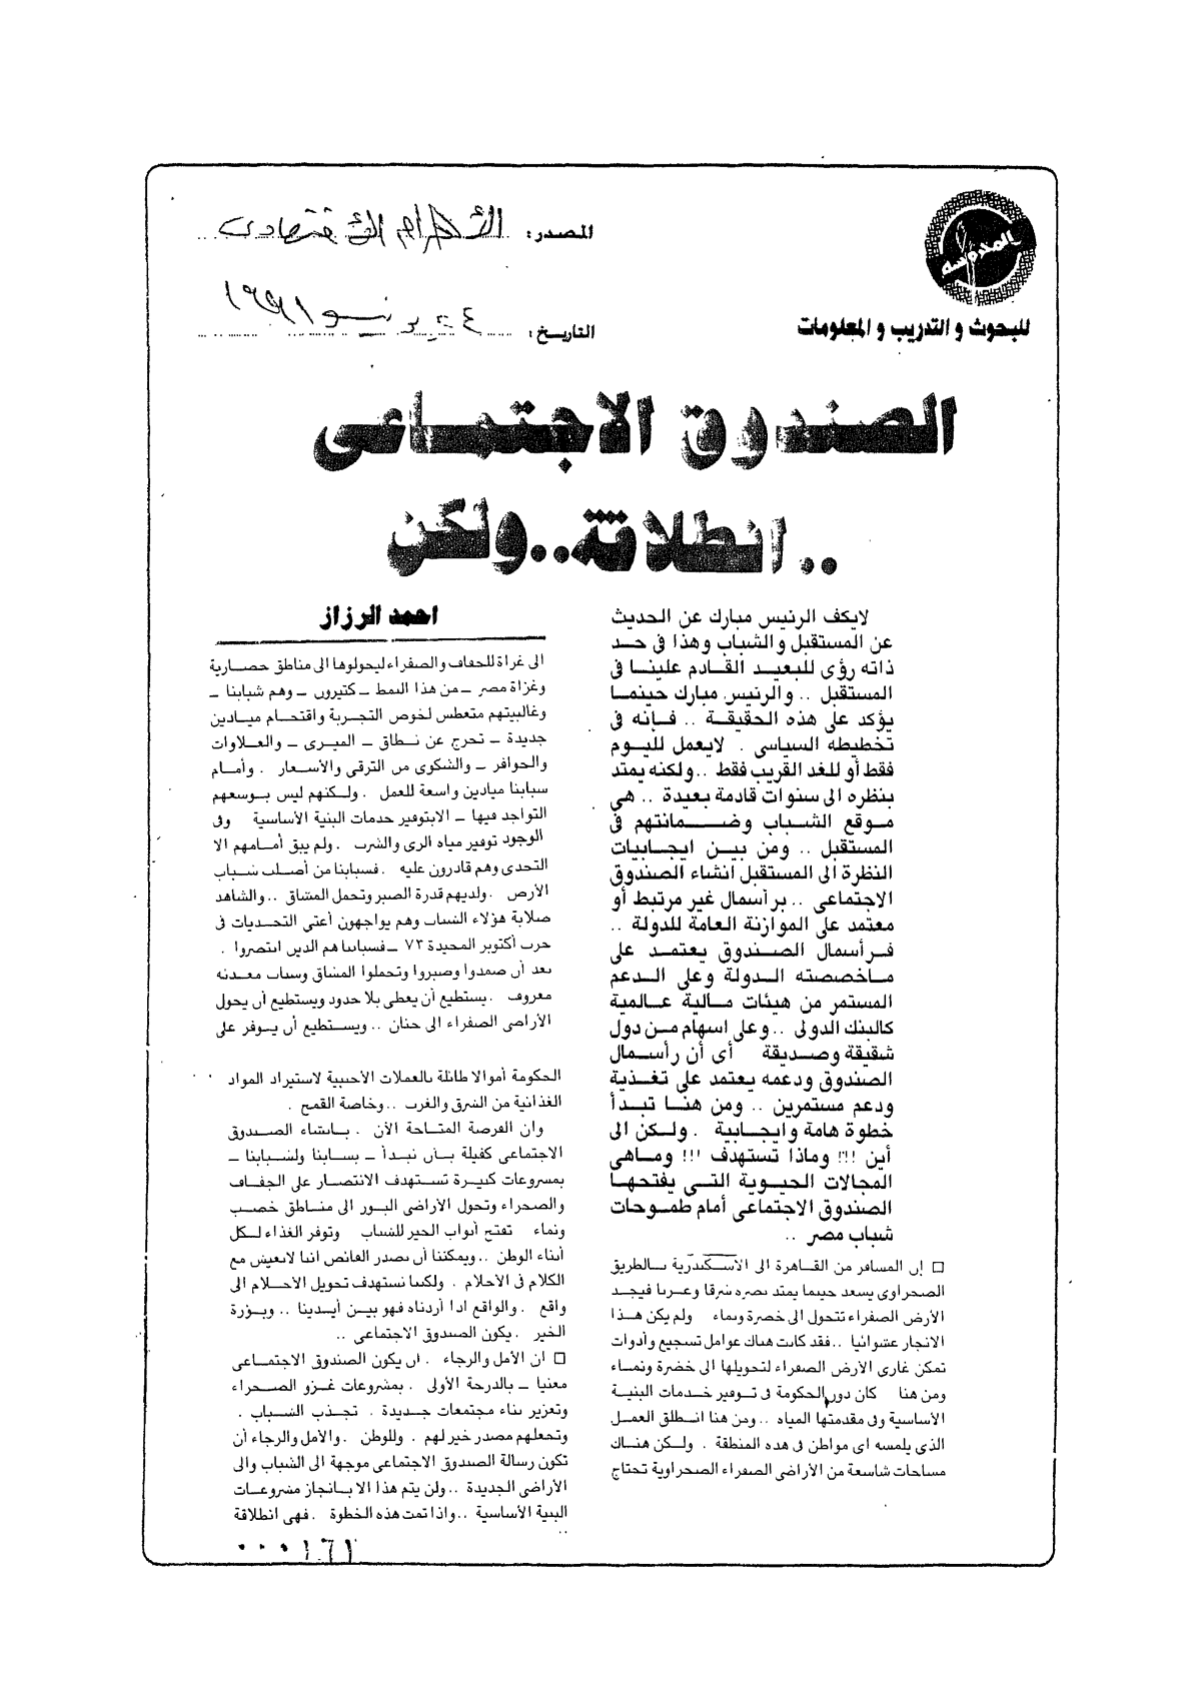 المدروسه
للبحوث و التدريب و المعلومات
المصدر: الأهرام الاقتصادى
التاريخ: ٢٤ يونيو ١٩٩١
الصندوق الاجتماعى
.. انطلاقة..ولكن
لايكف الرئيس مبارك عن الحديث
عن المستقبل والشباب وهذا فى حد
ذاته رؤى للبعيد القادم علينا فى
المستقبل .. والرئيس مبارك حينما
يؤكد على هذه الحقيقة .. فإنه فى
تخطيطه السياسى . لايعمل لليوم
فقط أو للغد القريب فقط ..ولكنه يمتد
بنظره الى سنوات قادمة بعيدة .. هى
موقع الشباب وضمانتهم فى
المستقبل .. ومن بين ايجابيات
النظرة الى المستقبل انشاء الصندوق
الاجتماعى ..برأسمال غير مرتبط أو
معتمد على الموازنة العامة للدولة ..
فرأسمال الصندوق يعتمد على
ماخصصته الدولة وعلى الدعم
المستمر من هيئات مالية عالمية
كالبنك الدولى ..وعلى اسهام من دول
شقيقة وصديقة أى أن رأسمال
الصندوق ودعمه يعتمد على تغذية
ودعم مستمرين .. ومن هنا تبدأ
خطوة هامة وايجابية . ولكن الى
أين !!! وماذا تستهدف !!! وماهى
المجالات الحيوية التى يفتحها
الصندوق الاجتماعى أمام طموحات
شباب مصر ..
□ إن المسافر من القاهرة الى الأسكندرية بالطريق
الصحراوى يسعد حينما يمتد بصره شرقا وغربا فيجد
الأرض الصفراء تتحول الى خضرة ونماء ولم يكن هذا
الانجاز عشوائيا ..فقد كانت هناك عوامل تسجيع وأدوات
تمكن غازى الأرض الصفراء لتحويلها الى خضرة ونماء
ومن هنا كان دور الحكومة فى توفير خدمات البنية
الأساسية وفى مقدمتها المياه ..ومن هنا انطلق العمل
الذى يلمسه اى مواطن فى هده المنطقة . ولكن هناك
مساحات شاسعة من الأراضى الصفراء الصحراوية تحتاج
احمد الرزاز
الى غزاة للجفاف والصفراء ليحولوها الى مناطق حصارية
وغزاة مصر ــ من هذا النمط ــ كثيرون ــ وهم شبابنا ــ
وغالبيتهم متعطس لخوض التجربة واقتحام ميادين
جديدة ــ تخرج عن نطاق ــ الميرى ــ والعلاوات
والحوافز ــ والشكوى من الترقى والأسعار . وأمام
سبابنا ميادين واسعة للعمل . ولكنهم ليس بوسعهم
التواجد فيها ــ الابتوفير خدمات البنية الأساسية وفى
الوجود توفير مياه الرى والشرب . ولم يبق أمامهم الا
التحدى وهم قادرون عليه . فسبابنا من أصلب شباب
الأرض . ولديهم قدرة الصبر وتحمل المشاق ..والشاهد
صلابة هؤلاء الشباب وهم يواجهون أعتى التحديات فى
حرب أكتوبر المجيدة ٧٣ ــ فسبابنا هم الدين انتصروا .
بعد أن صمدوا وصبروا وتحملوا المشاق وسباب معدنه
معروف . يستطيع أن يعطى بلا حدود ويستطيع أن يحول
الأراضى الصفراء الى جنان .. ويستطيع أن يوفر على
الحكومة أموالا طائلة بالعملات الأجنبية لاستيراد المواد
الغذائية من الشرق والغرب ..وخاصة القمح .
وان الفرصة المتاحة الأن . بانشاء الصندوق
الاجتماعى كفيلة بأن نبدأ ــ بسابنا ولشبابنا ــ
بمسروعات كبيرة تستهدف الانتصار على الجفاف
والصحراء وتحول الأراضى البور الى مناطق خصب
ونماء تفتح أبواب الخير للشباب وتوفر الغذاء لكل
أبناء الوطن ..ويمكننا أن نصدر الفائص اننا لانعيش مع
الكلام فى الأحلام . ولكننا نستهدف تحويل الاحلام الى
واقع . والواقع ادا أردناه فهو بين أيدينا .. وبؤرة
الخير . يكون الصندوق الاجتماعى ..
□ ان الأمل والرجاء . ان يكون الصندوق الاجتماعى
معنيا ــ بالدرجة الأولى . بمشروعات غزو الصحراء
وتعزيز بناء مجتمعات جديدة . تجذب الشباب .
وتجعلهم مصدر خير لهم . وللوطن . والأمل والرجاء أن
تكون رسالة الصندوق الاجتماعى موجهة الى الشباب والى
الأراضى الجديدة ..ولن يتم هذا الا بانجاز مشروعات
البنية الأساسية ..واذا تمت هذه الخطوة . فهى انطلاقة
..